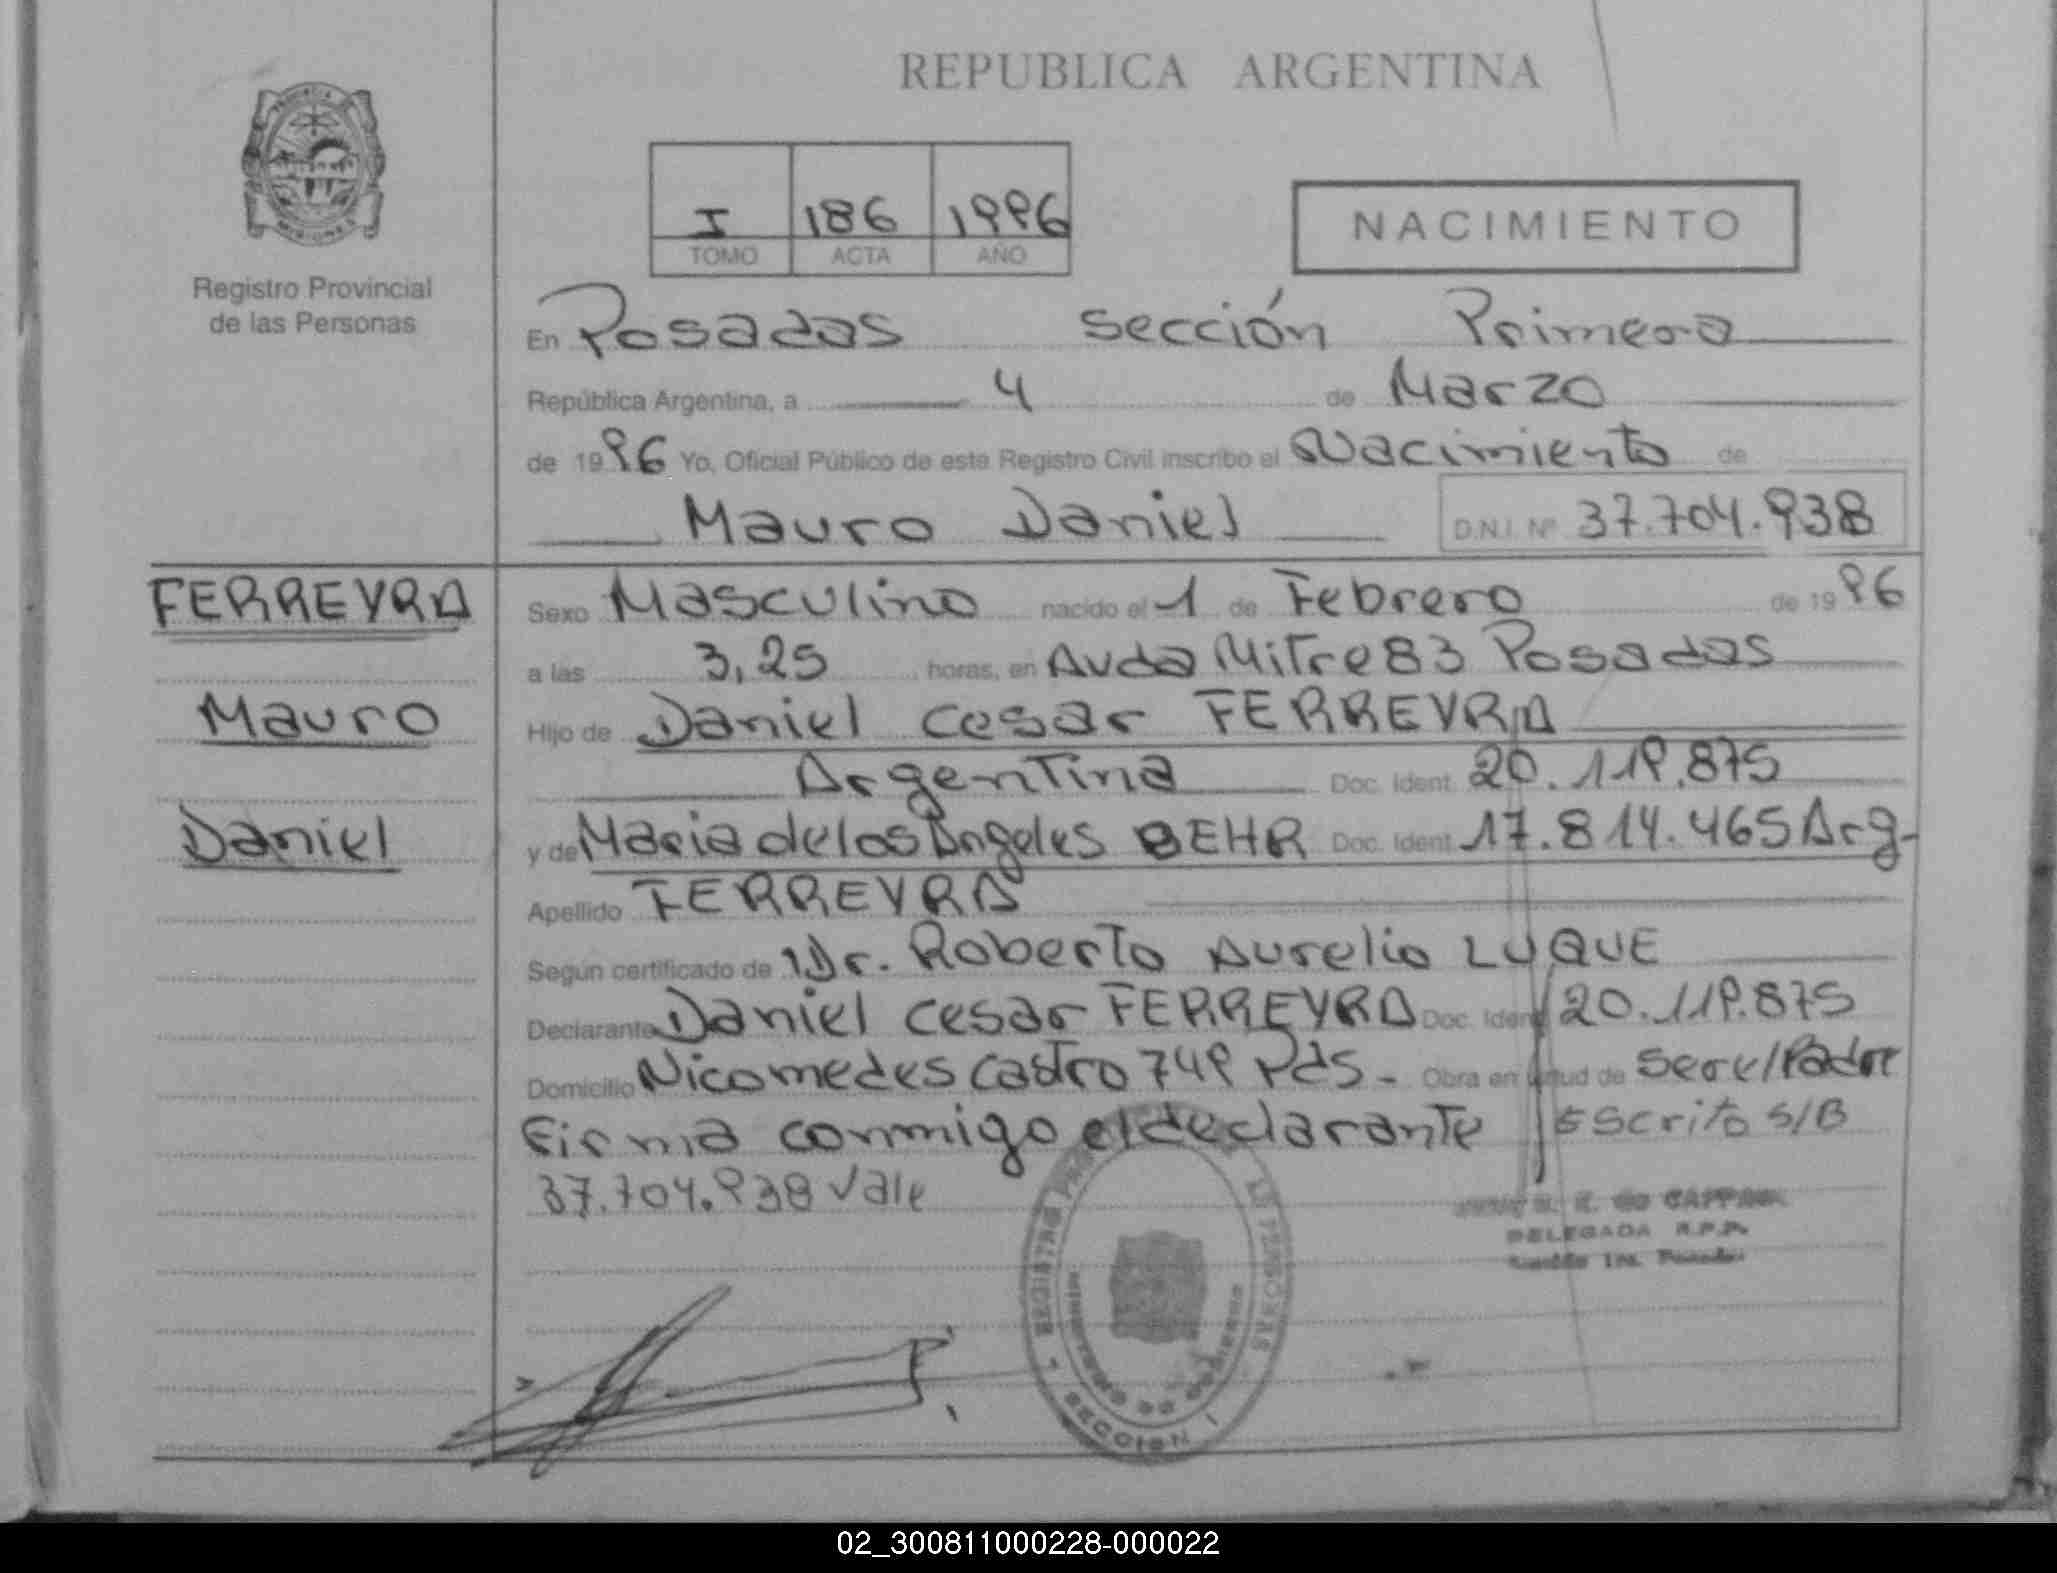 REPUBLICA ARGENTINA
I 186 1996
TOMO ACTA AÑO
NACIMIENTO
Registro Provincial
de las Personas
En Posadas sección Primera
República Argentina, a 4 de Marzo
de 1996 Yo, Oficial Público de este Registro Civil inscribo el Nacimiento de
Mauro Daniel D.N.I. Nº 37.704.938
FERREYRA
Mauro
Daniel
Sexo Masculino nacido el 1 de Febrero de 1996
a las 3,25 horas, en Avda Mitre 83 Posadas
Hijo de Daniel Cesar FERREYRA
Argentina Doc. Ident. 20.119.875
y de Maria de los Angeles BEHR Doc. Ident. 17.814.465 Arg-
Apellido FERREYRA
Según certificado de Dr. Roberto Aurelio LUQUE
Declarante Daniel Cesar FERREYRA Doc. Ident. 20.119.875
Domicilio Nicomedes Castro 749 Pds- Obra en virtud de ser el Padre
Firma conmigo el declarante Escrito S/B
37.704.938 Vale
DELEGADA R.P.P.
Sección 1ra. Posadas
SECCION 1
02_300811000228-000022